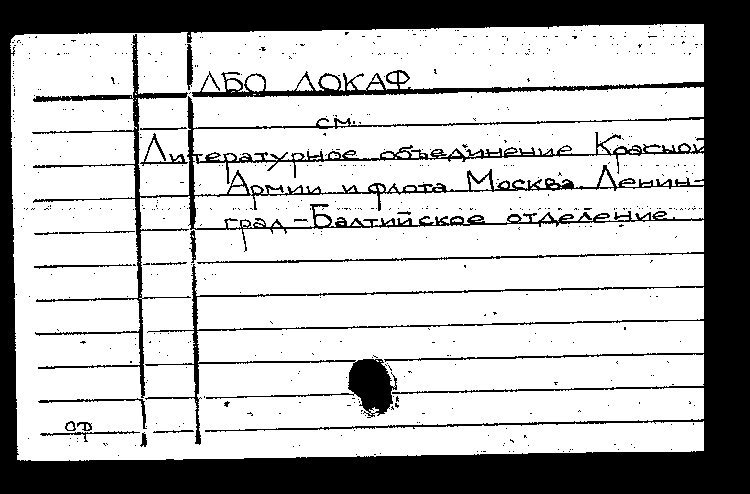 ЛБО ЛОКАФ
см.
Литературное объединение Красной
Армии и флота. Москва. Ленин-
град-Балтийское отделение.
ор